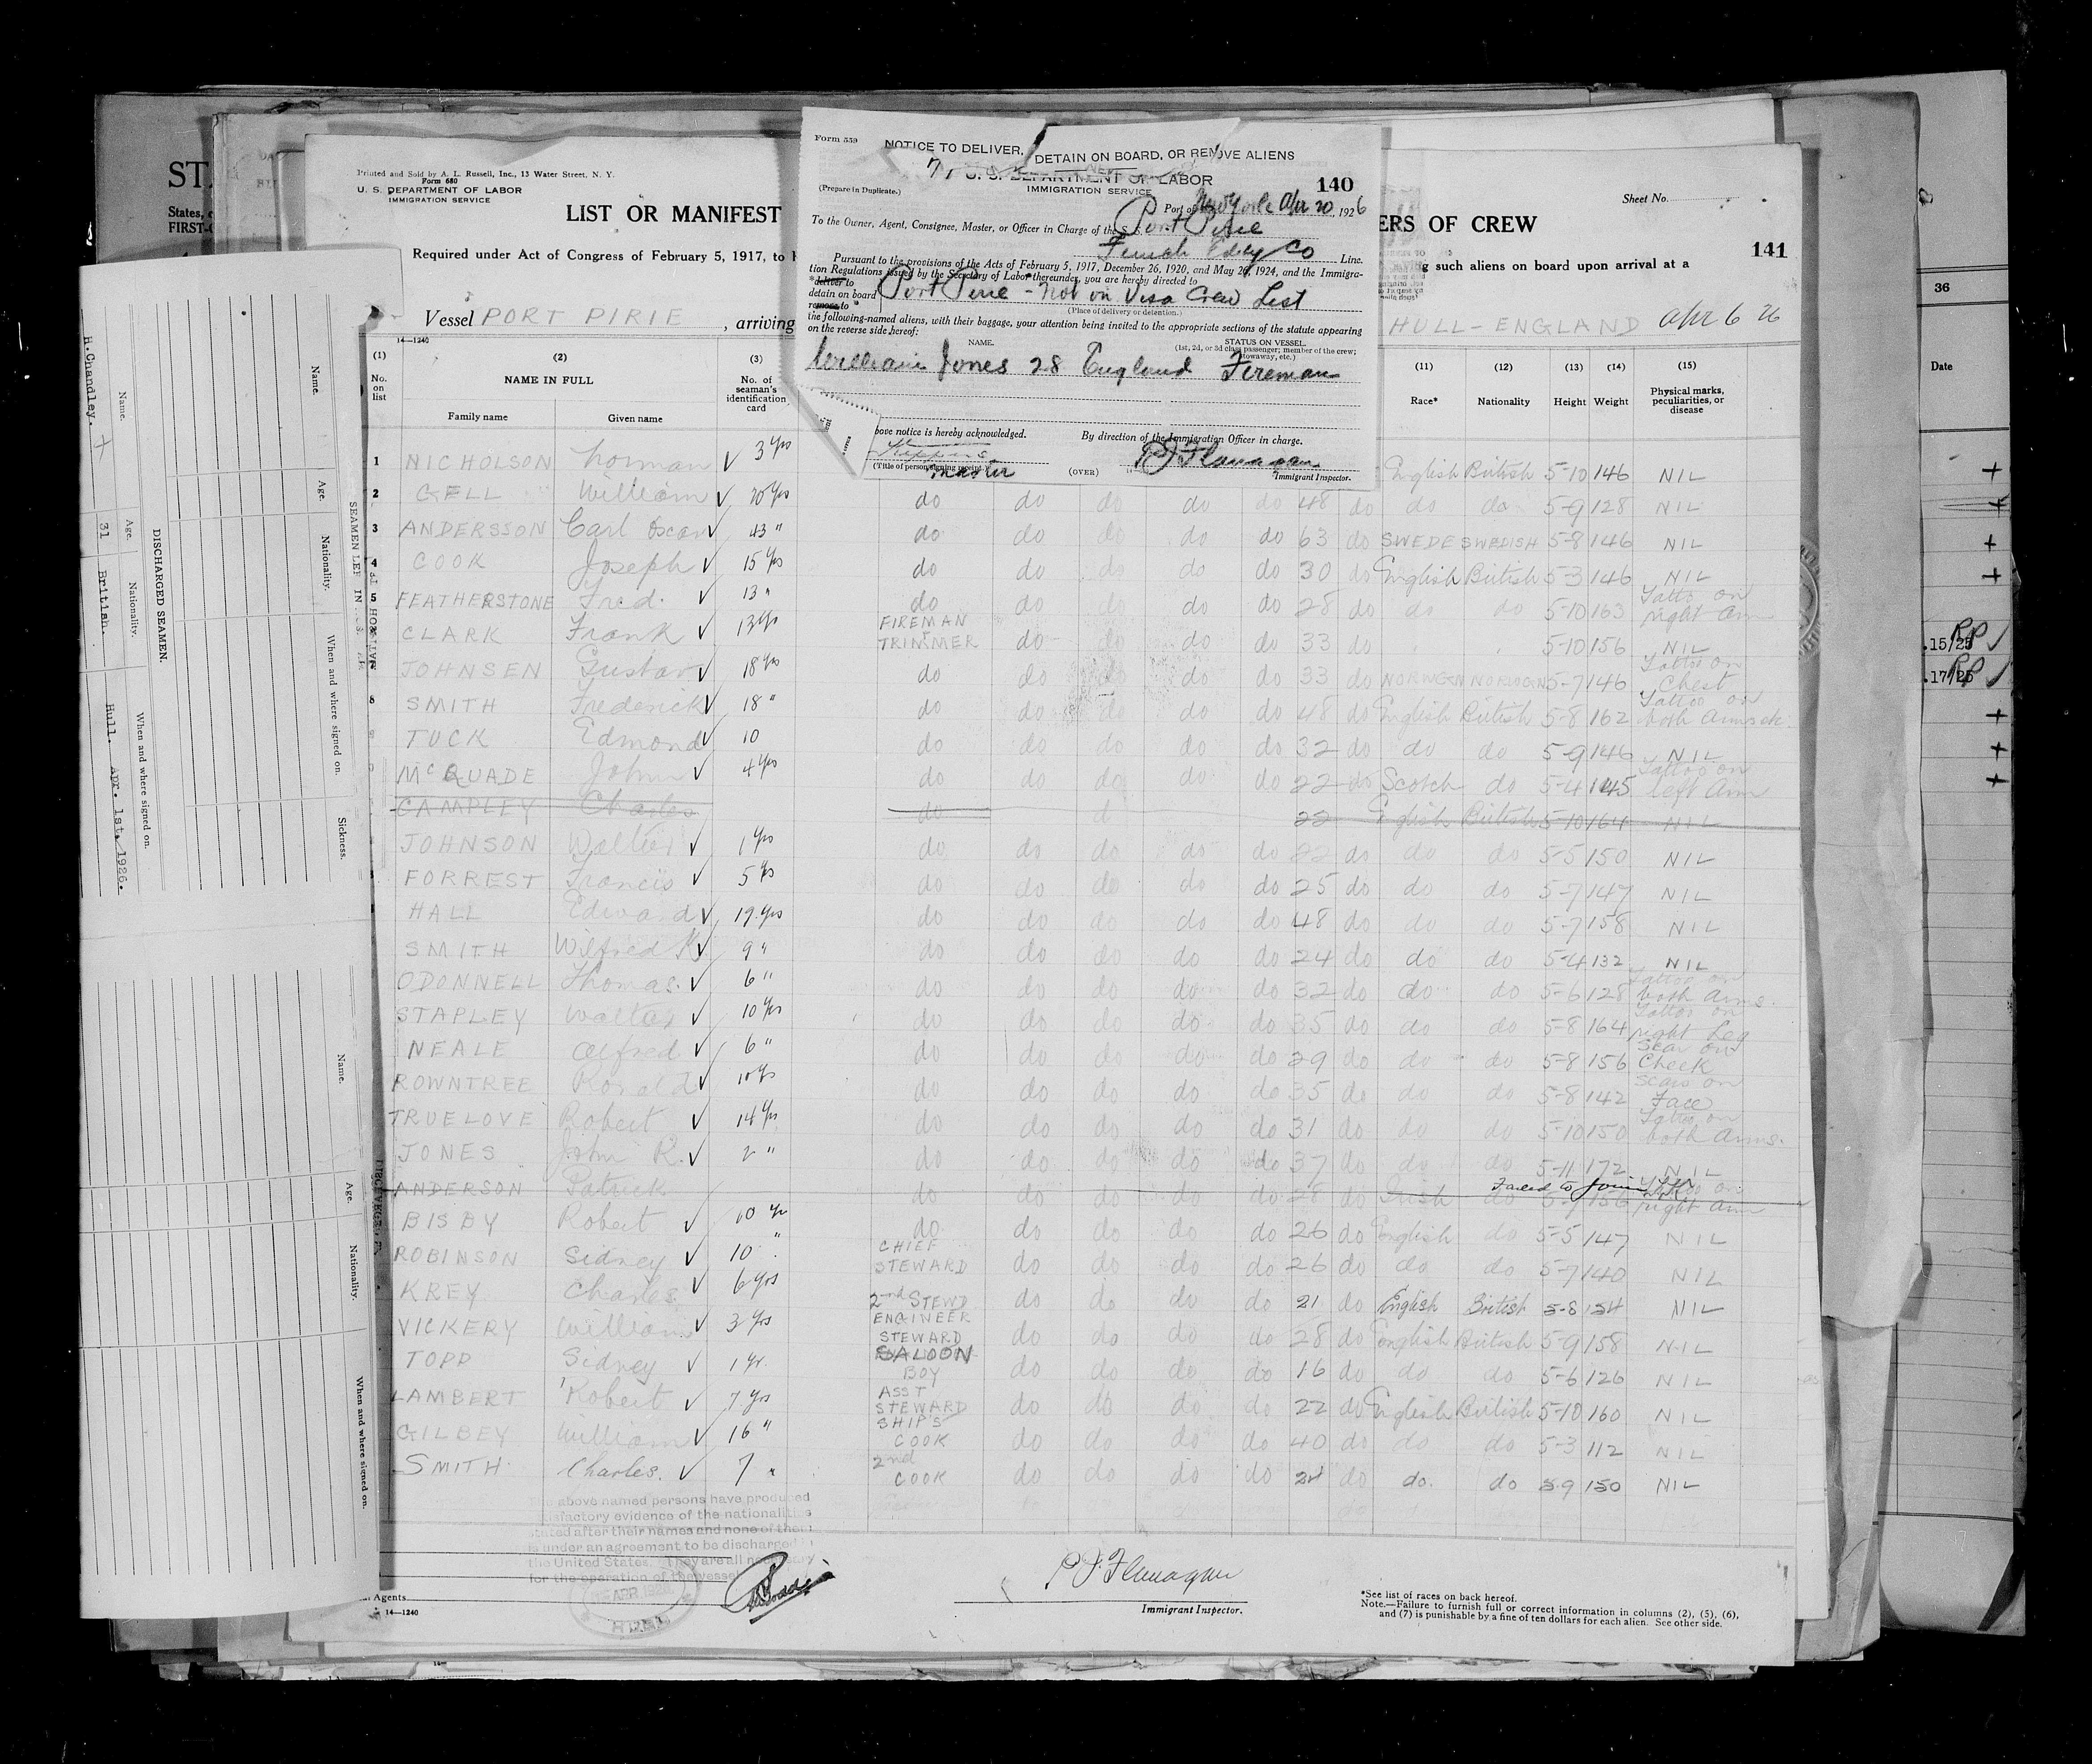 Printed and Sold by A. L. Russell, Inc., 13 Water Street, N. Y.
Form 680
U. S. DEPARTMENT OF LABOR
IMMIGRATION SERVICE
LIST OR MANIFEST
ERS OF CREW
Sheet No.
141
Required under Act of Congress of February 5, 1917, to
g such aliens on board upon arrival at a
Vessel PORT PIRIE, arriving
HULL-ENGLAND Apr 6 26
Form 559
NOTICE TO DELIVER, DETAIN ON BOARD, OR REMOVE ALIENS
U. S. DEPARTMENT OF LABOR
IMMIGRATION SERVICE
140
(Prepare in Duplicate.)
Port of New York Apr 20, 1926
To the Owner, Agent, Consignee, Master, or Officer in Charge of the S. S. Port Pirie
Line.
Pursuant to the provisions of the Acts of February 5, 1917, December 26, 1920, and May 26, 1924, and the Immigra-
tion Regulations issued by the Secretary of Labor thereunder, you are hereby directed to
*deliver to
detain on board
remove to
Port Pirie - Not on Visa Crew List
(Place of delivery or detention.)
the following-named aliens, with their baggage, your attention being invited to the appropriate sections of the statute appearing
on the reverse side hereof:
NAME.
STATUS ON VESSEL.
(1st, 2d, or 3d class passenger; member of the crew;
stowaway, etc.)
William Jones 28 England Fireman
bove notice is hereby acknowledged.
By direction of the Immigration Officer in charge.
P J Flanagan
(Title of person signing receipt.)
Master
(OVER)
Immigrant Inspector.
14-1240
(1) (2) (3) (11) (12) (13) (14) (15)
No. on list
NAME IN FULL
Family name Given name
No. of seaman's identification card
Race* Nationality Height Weight Physical marks, peculiarities, or disease
1 NICHOLSON Norman √ 3 yrs English British 5-10 146 NIL
2 GELL William √ 20 yrs do do do do do 48 do do do 5-9 128 NIL
3 ANDERSSON Carl Oscar √ 43 " do do do do do 63 do SWEDE SWEDISH 5-8 146 NIL
4 COOK Joseph √ 15 yrs do do do do do 30 do English British 5-3 146 NIL
5 FEATHERSTONE Fred. √ 13 " do do do do do 28 do do do 5-10 163 Tatto on right Arm
CLARK Frank √ 13 yrs FIREMAN TRIMMER do do do do 33 do 5-10 156 NIL
JOHNSEN Gustav √ 18 yrs do do do do do 33 do NORWGN NORWGN 5-7 146 Tattoo on Chest
8 SMITH Frederick √ 18 " do do do do do 48 do English British 5-8 162 Tattoo on both Arms etc.
TUCK Edmond √ 10 do do do do do 32 do do do 5-9 146 NIL
McQUADE John √ 4 yrs do do do do do 22 do Scotch do 5-4 145 Tattoo on left Arm
CAMPLEY Charles do d 22 English British 5-10 164 NIL
JOHNSON Walter √ 1 yrs do do do do do 22 do do do 5-5 150 NIL
FORREST Francis √ 5 yrs do do do do do 25 do do do 5-7 147 NIL
HALL Edward √ 19 yrs do do do do do 48 do do do 5-7 158 NIL
SMITH Wilfred K. √ 9 " do do do do do 24 do do do 5-4 132 NIL
ODONNELL Thomas. √ 6 " do do do do do 32 do do do 5-6 128 Tattoo on both Arms.
STAPLEY Walter √ 10 yrs do do do do do 35 do do do 5-8 164 Tattoo on right Leg
NEALE Alfred √ 6 " do do do do do 29 do do do 5-8 156 Scar on Cheek
ROWNTREE Ronald √ 10 yrs do do do do do 35 do do do 5-8 142 Scars on Face
TRUELOVE Robert √ 14 yrs do do do do do 31 do do do 5-10 150 Tattoo on both Arms.
JONES John R. √ 2 " do do do do do 37 do do do 5-11 172 NIL
Failed to Join
ANDERSON Patrick do do do do do 28 do Irish do 5-7 156 Tattoo on right Arm
BISBY Robert √ 10 yr do do do do do 26 do English do 5-5 147 NIL
ROBINSON Sidney √ 10 " CHIEF STEWARD do do do do 26 do do do 5-7 140 NIL
KREY Charles √ 6 yrs 2nd STEWD do do do do 21 do English British 5-8 154 NIL
VICKERY William √ 3 yrs ENGINEER STEWARD do do do do 28 do English British 5-9 158 NIL
TOPP Sidney √ 1 yr. SALOON BOY do do do do 16 do do do 5-6 126 NIL
LAMBERT Robert √ 7 yrs ASST STEWARD do do do do 22 do English British 5-10 160 NIL
GILBEY William √ 16 " SHIP'S COOK do do do do 40 do do do 5-3 112 NIL
SMITH Charles. √ 7 " 2nd COOK do do do do 24 do do. do 5-9 150 NIL
The above named persons have produced
satisfactory evidence of the nationalities
stated after their names and none of them
is under an agreement to be discharged in
the United States. They are all necessary
for the operation of the vessel
APR
Agents.
14-1240
P J Flanagan
Immigrant Inspector.
*See list of races on back hereof.
Note.—Failure to furnish full or correct information in columns (2), (5), (6),
and (7) is punishable by a fine of ten dollars for each alien. See other side.
DISCHARGED SEAMEN.
Name. Age. Nationality. When and where signed on.
H.Chandley. 31 British. Hull. Apr. 1st. 1926.
Name. Age. Nationality. When and where signed on. Sickness.
Name. Age. Nationality. When and where signed on.
States,
FIRST-
36
Date
.15/25 RP √
.17/25 RP √